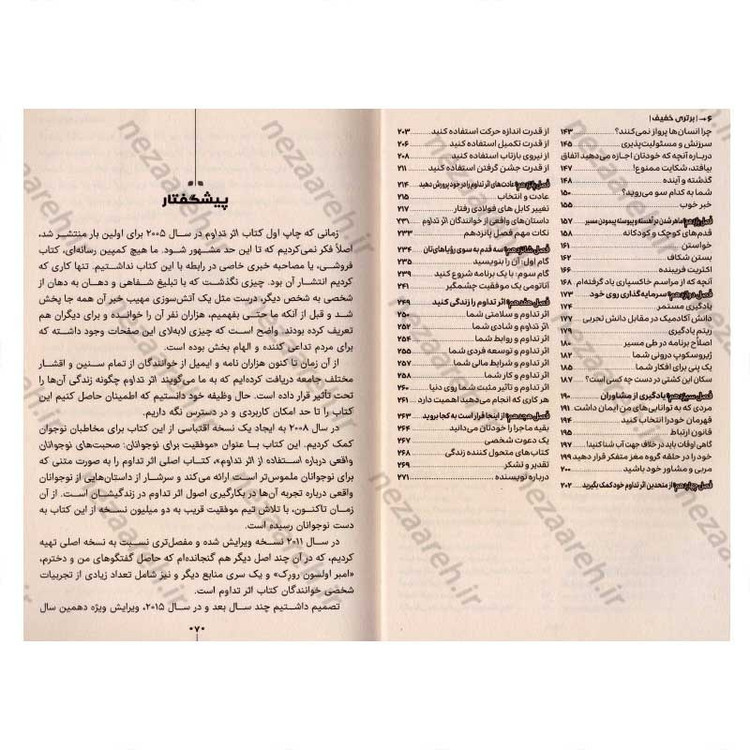 ۶ → | برتری خفیف |
چرا انسان‌ها پرواز نمی‌کنند؟ ۱۴۳
سرزنش و مسئولیت‌پذیری ۱۴۵
درباره آنچه که خودتان اجازه می‌دهید اتفاق
بیافتد، شکایت ممنوع! ۱۴۷
گذشته و آینده ۱۴۸
شما به کدام سو می‌روید؟ ۱۵۰
خبر خوب ۱۵۵
قدم‌های کوچک و کودکانه ۱۵۸
خواستن ۱۶۱
بستن شکاف ۱۶۲
اکثریت فریبنده ۱۶۶
آنچه که از مراسم خاکسپاری یاد گرفته‌ام ۱۶۸
فصل دوازدهم: سرمایه‌گذاری روی خود ۱۷۳
یادگیری مستمر ۱۷۴
دانش آکادمیک در مقابل دانش تجربی ۱۷۷
ریتم یادگیری ۱۷۹
اصلاح برنامه در طی مسیر ۱۸۰
ژیروسکوپ درونی شما ۱۸۲
یک پنی برای افکار شما ۱۸۴
سکان این کشتی در دست چه کسی است؟ ۱۸۷
فصل سیزدهم: یادگیری از مشاوران ۱۹۰
مردی که به توانایی‌های من ایمان داشت ۱۹۱
قهرمان خود را انتخاب کنید ۱۹۴
قانون ارتباط ۱۹۵
گاهی اوقات باید در خلاف جهت آب شنا کنید! ۱۹۷
خود را در حلقه گروه مغز متفکر قرار دهید ۱۹۹
مربی و مشاور خود باشید ۲۰۰
فصل چهاردهم: از متحدین اثر تداوم خود کمک بگیرید ۲۰۲
از قدرت اندازه حرکت استفاده کنید ۲۰۳
از قدرت تکمیل استفاده کنید ۲۰۶
از نیروی بازتاب استفاده کنید ۲۰۸
از قدرت جشن گرفتن استفاده کنید ۲۱۱
فصل پانزدهم: عادت‌های اثر تداوم را در خود پرورش دهید ۲۱۴
عادت و انتخاب ۲۱۵
تغییر کابل های فولادی رفتار ۲۱۷
داستان‌های واقعی از خوانندگان اثر تداوم ۲۳۱
نکات مهم فصل پانزدهم ۲۳۳
فصل شانزدهم: سه قدم به سوی رؤیاهای‌تان ۲۳۴
گام اول: آن را بنویسید ۲۳۵
گام سوم: با یک برنامه شروع کنید ۲۳۹
آناتومی یک موفقیت چشمگیر ۲۴۱
فصل هفدهم: اثر تداوم را زندگی کنید ۲۴۹
تداوم و سلامتی شما ۲۵۰
اثر تداوم و شادی شما ۲۵۲
تداوم و روابط شما ۲۵۴
تداوم و توسعه فردی شما ۲۵۵
تداوم و شرایط مالی شما ۲۵۷
اثر تداوم و کار شما ۲۵۸
تداوم و تاثیر مثبت شما روی دنیا ۲۶۰
هر کاری که انجام می‌دهید اهمیت دارد ۲۶۱
فصل هجدهم: از اینجا قرار است به کجا بروید ۲۶۳
بقیه ماجرا را خودتان می‌دانید ۲۶۴
یک دعوت شخصی ۲۶۷
کتاب‌های متحول کننده زندگی ۲۶۸
تقدیر و تشکر ۲۶۹
درباره نویسنده ۲۷۱
پیشگفتار
زمانی که چاپ اول کتاب اثر تداوم در سال ۲۰۰۵ برای اولین بار منتشر شد،
اصلاً فکر نمی‌کردیم که تا این حد مشهور شود. ما هیچ کمپین رسانه‌ای،
فروشی، یا مصاحبه خبری خاصی در رابطه با این کتاب نداشتیم. تنها کاری که
کردیم انتشار آن بود. چیزی نگذشت که با تبلیغ شفاهی و دهان به دهان از
شخصی به شخص دیگر، درست مثل یک آتش‌سوزی مهیب خبر آن همه جا پخش
شد و قبل از آنکه ما حتی بفهمیم، هزاران نفر آن را خوانده و برای دیگران هم
تعریف کرده بودند. واضح است که چیزی لابه‌لای این صفحات وجود داشته که
برای مردم تداعی کننده و الهام بخش بوده است.
از آن زمان تا کنون هزاران نامه و ایمیل از خوانندگان از تمام سنین و اقشار
مختلف جامعه دریافت کرده‌ایم که به ما می‌گویند اثر تداوم چگونه زندگی آن‌ها را
تحت تأثیر قرار داده است. حال وظیفه خود دانستیم که اطمینان حاصل کنیم این
کتاب را تا حد امکان کاربردی و در دسترس نگه داریم.
در سال ۲۰۰۸ به ایجاد یک نسخه اقتباسی از این کتاب برای مخاطبان نوجوان
کمک کردیم. این کتاب با عنوان «موفقیت برای نوجوانان: صحبت‌های نوجوانان
واقعی درباره استفاده از اثر تداوم»، کتاب اصلی اثر تداوم را به صورت متنی که
برای نوجوانان ملموس‌تر است ارائه می‌کند و سرشار از داستان‌هایی از نوجوانان
واقعی درباره تجربه آن‌ها در بکارگیری اصول اثر تداوم در زندگیشان است. از آن
زمان تاکنون، با تلاش تیم موفقیت قریب به دو میلیون نسخه از این کتاب به
دست نوجوانان رسیده است.
در سال ۲۰۱۱ نسخه ویرایش شده و مفصل‌تری نسبت به نسخه اصلی تهیه
کردیم، که در آن چند اصل دیگر هم گنجانده‌ام که حاصل گفتگوهای من و دخترم،
«امبر اولسون رورک» و یک سری منابع دیگر و نیز شامل تعداد زیادی از تجربیات
شخصی خوانندگان کتاب اثر تداوم است.
تصمیم داشتیم چند سال بعد و در سال ۲۰۱۵، ویرایش ویژه دهمین سال
۰۷۰
nezaareh.ir